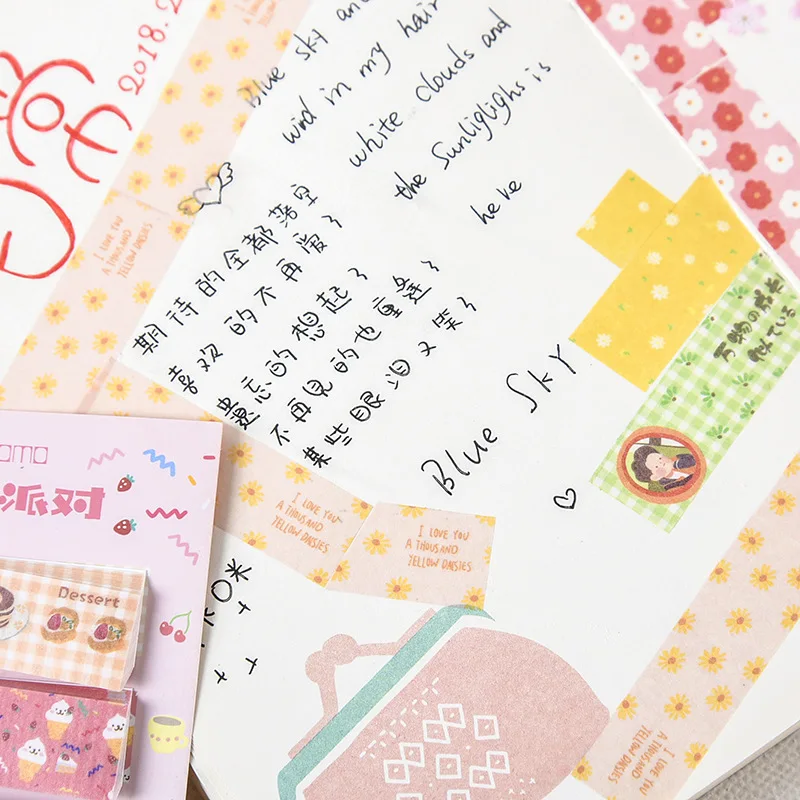 2018.2
Blue sky and
wind in my hair
white clouds and
the sunliglighs is
heke
期待的全都落空
喜欢的不再爱了
遗忘的想起了
不再見的也重逢了
某些眼泪又笑了
BLUE SKY
I LOVE YOU
A THOUSAND
YELLOW DAISIES
I LOVE YOU
A THOUSAND
YELLOW DAISIES
I LOVE YOU
A THOUSAND
YELLOW DAISIES
I LOVE YOU
A THOUSAND
YELLOW DAISIES
I LOVE YOU
A THOUSAND
YELLOW DAISIES
万物の
ている
派对
Dessert